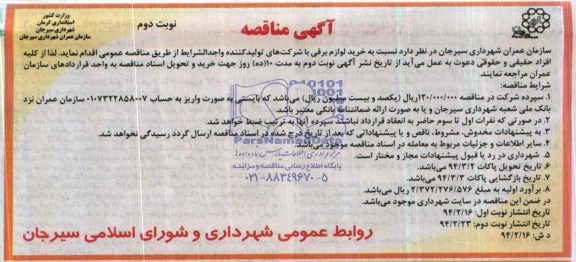 وزارت کشور
استانداری کرمان
شهرداری سیرجان
سازمان عمران شهرداری سیرجان
آگهی مناقصه
نوبت دوم
سازمان عمران شهرداری سیرجان در نظر دارد نسبت به خرید لوازم برقی با شرکت‌های تولیدکننده واجدالشرایط از طریق مناقصه عمومی اقدام نماید. لذا از کلیه
افراد حقیقی و حقوقی دعوت به عمل می‌آید از تاریخ نشر آگهی نوبت دوم به مدت ۱۰(ده) روز جهت خرید و تحویل اسناد مناقصه به واحد قراردادهای سازمان
عمران مراجعه نمایند.
شرایط مناقصه:
۱. سپرده شرکت در مناقصه ۱۲۰/۰۰۰/۰۰۰ریال (یکصد و بیست میلیون ریال) می‌باشد که بایستی به صورت واریز به حساب ۰۱۰۷۳۲۲۸۵۸۰۰۷ سازمان عمران نزد
بانک ملی شعبه شهرداری سیرجان و یا به صورت ارائه ضمانتنامه بانکی معتبر باشد.
۲. در صورتی که نفرات اول تا سوم حاضر به انعقاد قرارداد نباشند سپرده آنها به ترتیب ضبط خواهد شد.
۳. به پیشنهادات مخدوش، مشروط، ناقص و یا پیشنهاداتی که بعد از تاریخ درج شده در اسناد مناقصه ارسال گردد رسیدگی نخواهد شد.
۴. سایر اطلاعات و جزئیات مربوط به معامله در اسناد مناقصه موجود می‌باشد.
۵. شهرداری در رد یا قبول پیشنهادات مجاز و مختار است.
۶. تاریخ تحویل پاکات ۹۴/۳/۲ می‌باشد.
۷. تاریخ بازگشایی پاکات ۹۴/۳/۳ می‌باشد.
۸. برآورد اولیه به مبلغ ۲/۳۷۲/۲۷۶/۵۷۶ ریال می‌باشد.
در ضمن این مناقصه در سایت شهرداری موجود می‌باشد.
تاریخ انتشار نوبت اول: ۹۴/۲/۱۶
تاریخ انتشار نوبت دوم: ۹۴/۲/۲۳
د ش: ۹۴/۲/۱۶
روابط عمومی شهرداری و شورای اسلامی سیرجان
ParsNamadData
پایگاه اطلاع رسانی مناقصه و مزایده
۰۲۱-۸۸۳۴۹۶۷۰-۵